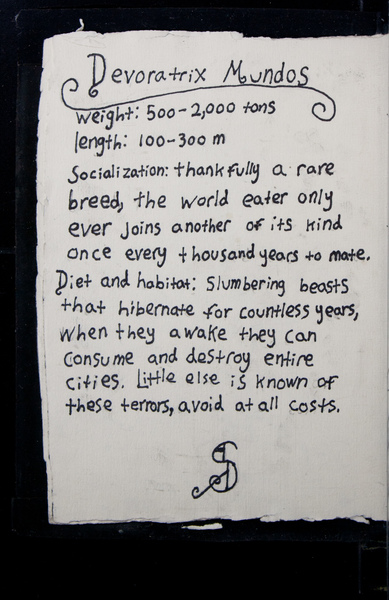 Devoratrix Mundos
weight: 500-2,000 tons
length: 100-300 m
Socialization: thankfully a rare
breed, the world eater only
ever joins another of its kind
once every thousand years to mate.
Diet and habitat: Slumbering beasts
that hibernate for countless years,
when they awake they can
consume and destroy entire
cities. Little else is known of
these terrors, avoid at all costs.